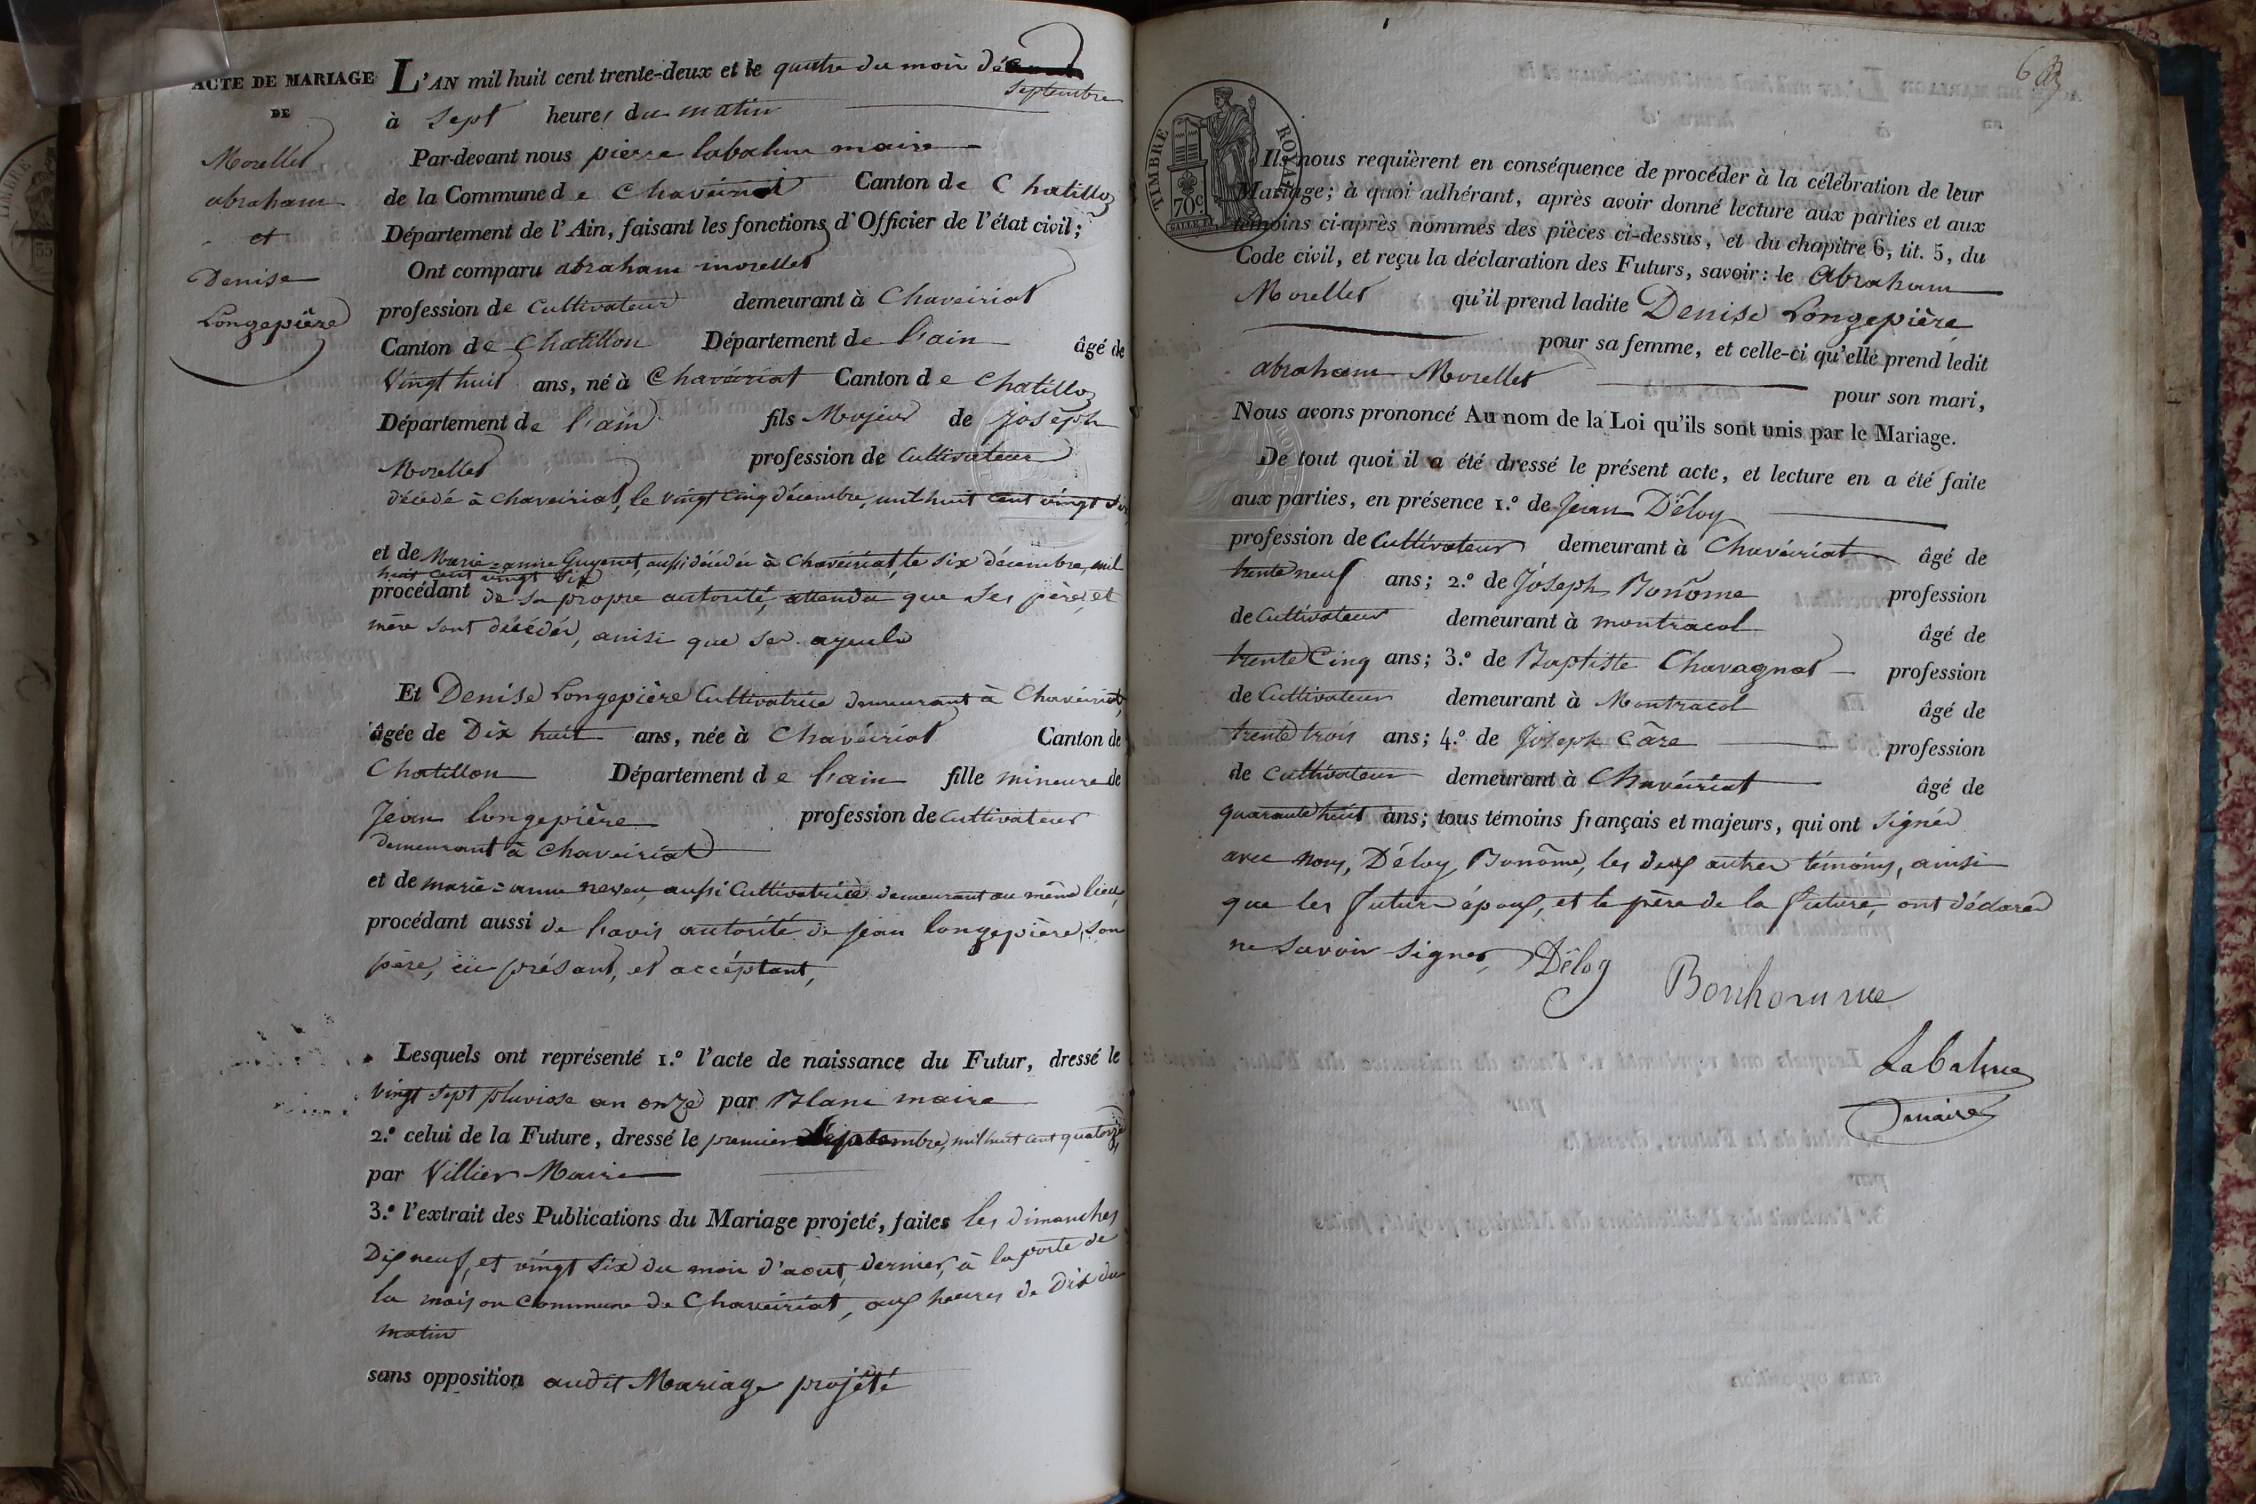 ACTE DE MARIAGE
DE
Morellet
abraham
et
Denise
Longepière
L'AN mil huit cent trente-deux et le quatre du mois de
septembre
à sept heures du matin
Par-devant nous pierre labalme maire
de la Commune de Chaveiriat Canton de Chatillon
Département de l'Ain, faisant les fonctions d'Officier de l'état civil;
Ont comparu abraham morellet
profession de Cultivateur demeurant à Chaveiriat
Canton de Chatillon Département de l'ain âgé de
Vingt huit ans, né à Chavéiriat Canton de Chatillon
Département de l'ain fils Majeur de joseph
Morellet profession de Cultivateur
décédé à chaveiriat, le vingt cinq décembre, mil huit cent vingt six
et de Marie=anne Guyenet, aussi décédée à Chavéiriat, le six décembre, mil
huit cent vingt six
procédant de sa propre autorité, attendu que ses père, et
mère sont décédés, ainsi que ses ayeuls
Et Denise Longepière Cultivatrice demeurant à Chavéiriat,
âgée de Dix huit ans, née à Chavéiriat Canton de
Chatillon Département de l'ain fille mineure de
Jean longepière profession de cultivateur
demeurant à chaveiriat
et de marie=anne neveu, aussi Cultivatrice demeurant au même lieu,
procédant aussi de l'avis autorité de jean longepière, son
père, ici présant, et accéptant,
Lesquels ont représenté 1.º l'acte de naissance du Futur, dressé le
vingt sept pluviose an onze par Blanc maire
2.º celui de la Future, dressé le premier Septembre, mil huit cent quatorze,
par Villier Maire
3.º l'extrait des Publications du Mariage projeté, faites les dimanches
Dix neuf, et vingt six du mois d'aout, dernier, à la porte de
la maison commune de Chaveiriat, aux heures de Dix du
matin
sans opposition audit Mariage projété
TIMBRE ROYAL
70 c.
Ils nous requièrent en conséquence de procéder à la célébration de leur
Mariage; à quoi adhérant, après avoir donné lecture aux parties et aux
témoins ci-après nommés des pièces ci-dessus, et du chapitre 6, tit. 5, du
Code civil, et reçu la déclaration des Futurs, savoir: le Abraham
Morellet qu'il prend ladite Denise Longepière
pour sa femme, et celle-ci qu'elle prend ledit
abraham Morellet pour son mari,
Nous avons prononcé Au nom de la Loi qu'ils sont unis par le Mariage.
De tout quoi il a été dressé le présent acte, et lecture en a été faite
aux parties, en présence 1.º de Jean Déloy
profession de Cultivateur demeurant à Chavéiriat âgé de
trente neuf ans; 2.º de Joseph Bonôme profession
de Cultivateur demeurant à montracol âgé de
trente Cinq ans; 3.º de Baptiste Chavagnat profession
de Cultivateur demeurant à Montracol âgé de
trente trois ans; 4.º de Joseph Câre profession
de Cultivateur demeurant à Chavéiriat âgé de
quarante huit ans; tous témoins français et majeurs, qui ont signés
avec nous, Déloy, Bonôme, les deux autres témoins, ainsi
que les futurs époux, et le père de la future, ont déclaré
ne savoir signer,
Déloy
Bonhomme
Labalme
maire